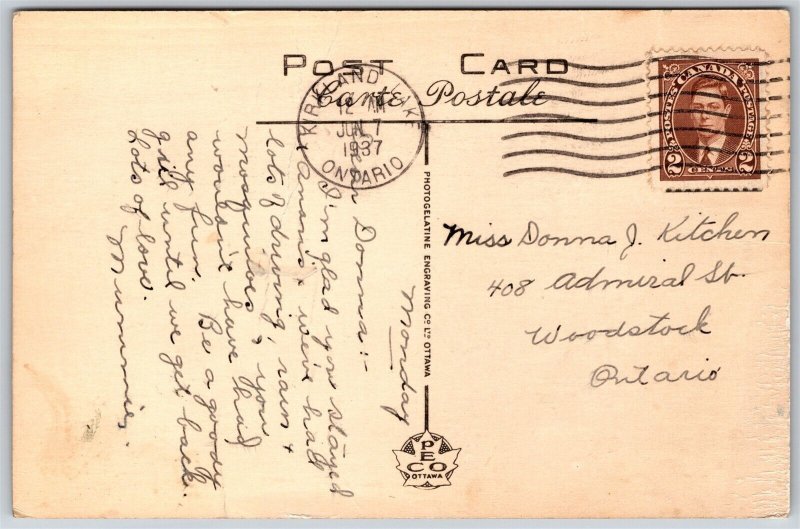 POST CARD
Carte Postale
KIRKLAND LAKE
12 AM
JUN 7
1937
ONTARIO
POSTES CANADA POSTAGE
2 CENTS 2
Monday
Dear Donna:-
I'm glad you stayed
at Nana's, we've had
lots of driving, rain &
mosquitoes & you
wouldn't have had
any fun. Be a good
girl until we get back.
Lots of love.
Mummie.
PHOTOGELATINE ENGRAVING CO LTD OTTAWA
PECO
OTTAWA
Miss Donna J. Kitchen
408 Admiral St.
Woodstock
Ontario